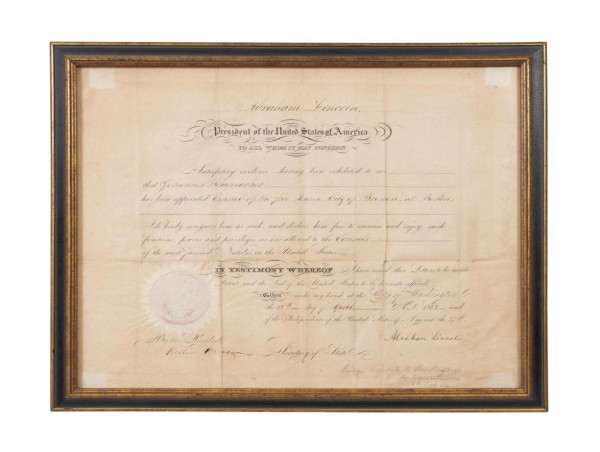 Abraham Lincoln,
President of the United States of America
TO ALL WHOM IT MAY CONCERN
Satisfactory evidence having been exhibited to me
that Johannes
has been appointed Consul of the free Hanse City of Bremen, at Boston,
I do hereby recognize him as such, and declare him free to exercise and enjoy such
functions, powers and privileges as are allowed to the Consuls
of the most favored Nations in the United States.
IN TESTIMONY WHEREOF I have caused these Letters to be made
Patent, and the Seal of the United States to be hereunto affixed.
Given under my hand at the City of Washington,
the day of A.D. 1862, and
of the Independence of the United States of America, the
Abraham Lincoln
Secretary of State.